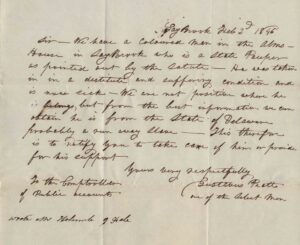 Saybrook Feb 2d 1846
Sir – We have a Coloured Man in the Alms-
House in Saybrook who is a State Pauper
as pointed out by the Statute – he was taken
in in a destitute and suffering condition and
is now sick – We are not positive where he
belong, but from the best information we can
obtain he is from the State of
probably a run away Slave – This therefor
is to notify you to take care of him or provide
for his support
Yours very respectfully
To the Comptroller
of Public accounts
one of the Select Men
wrote Mr